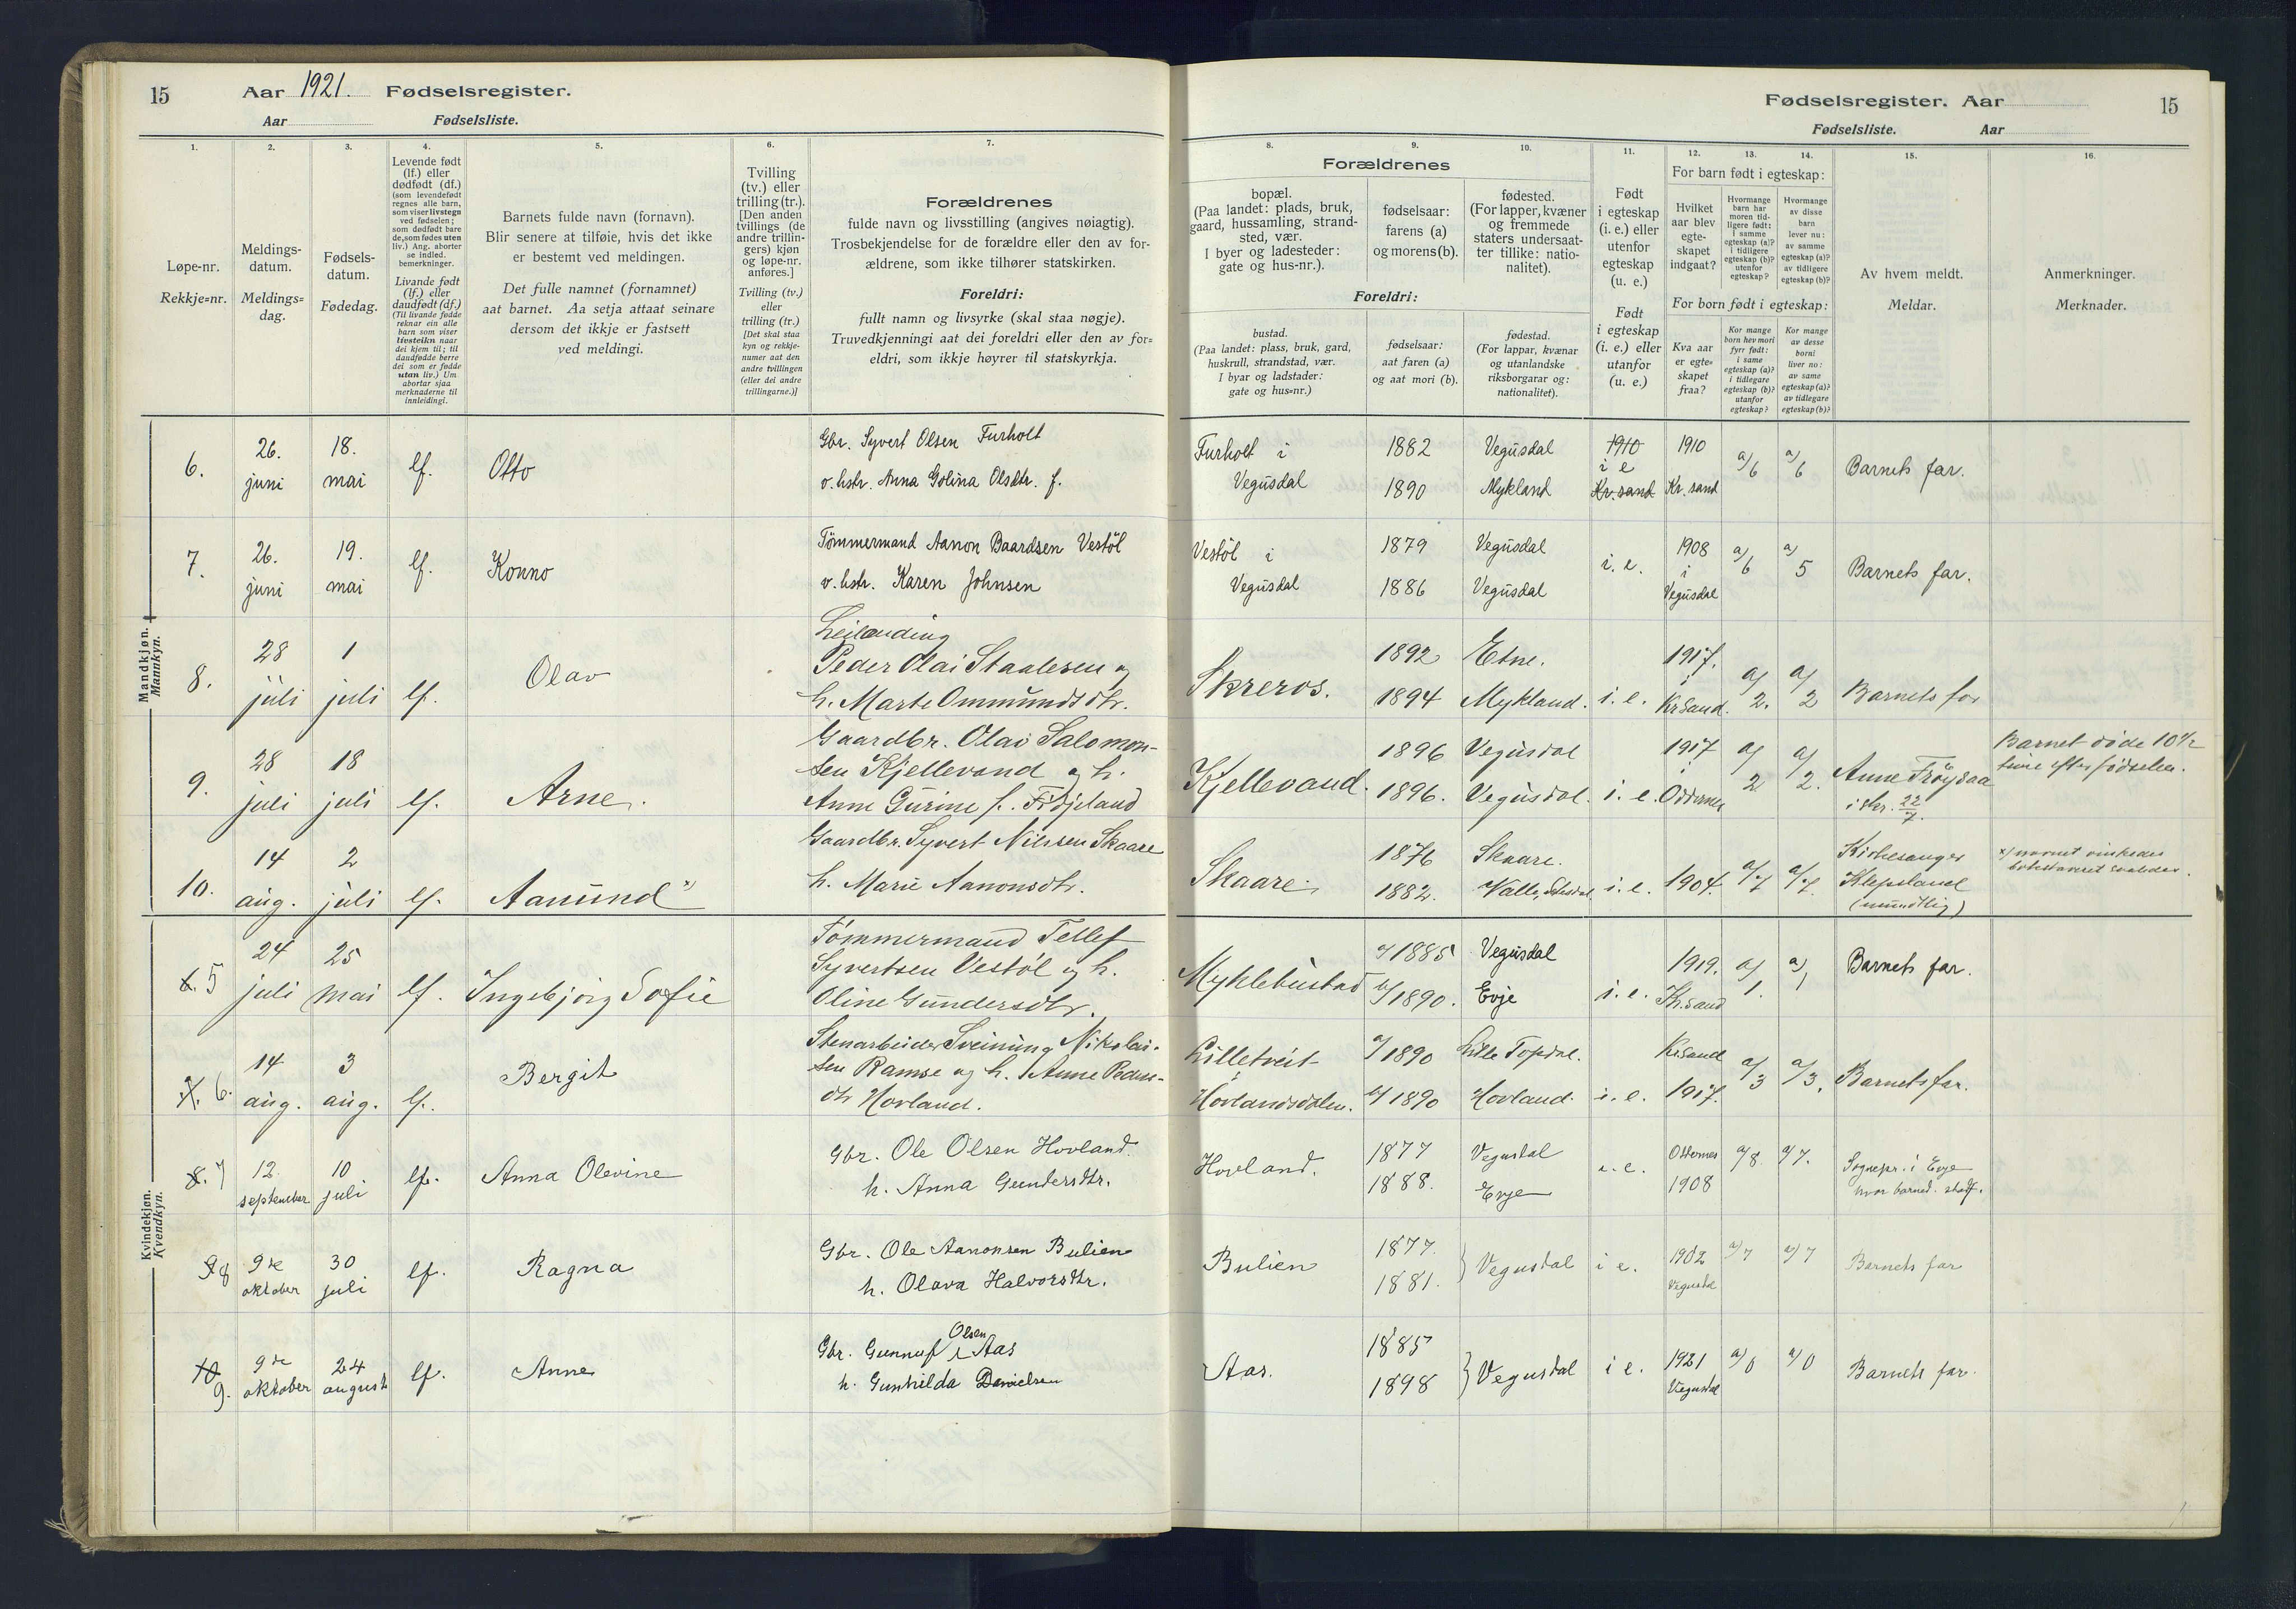 15
Aar 1921. Fødselsregister.
Aar Fødselsliste.
1.
2.
3.
4.
5.
6.
7.
Løpe-nr.
Rekkje-nr.
Meldings-
datum.
Meldings-
dag.
Fødsels-
datum.
Fødedag.
Levende født
(lf.) eller
dødfødt (df.)
(som levendefødt
regnes alle barn,
som viser livstegn
ved fødselen;
som dødfødt bare
de, som fødes uten
liv.) Ang. aborter
se indled.
bemerkninger.
Livande født
(lf.) eller
daudfødt (df.)
(Til livande fødde
reknar ein alle
barn som viser
livsteikn naar
dei kjem til; til
daudfødde berre
dei som er fødde
utan liv.) Um
abortar sjaa
merknaderne til
innleidingi.
Barnets fulde navn (fornavn).
Blir senere at tilføie, hvis det ikke
er bestemt ved meldingen.
Det fulle namnet (fornamnet)
aat barnet. Aa setja attaat seinare
dersom det ikkje er fastsett
ved meldingi.
Tvilling
(tv.) eller
trilling (tr.).
[Den anden
tvillings (de
andre trillin-
gers) kjøn
og løpe-nr.
anføres.]
Tvilling (tv.)
eller
trilling (tr.)
[Det skal staa
kyn og rekkje-
numer aat den
andre tvillingen
(eller dei andre
trillingarne.)]
Forældrenes
fulde navn og livsstilling (angives nøiagtig).
Trosbekjendelse for de forældre eller den av for-
ældrene, som ikke tilhører statskirken.
Foreldri:
fullt namn og livsyrke (skal staa nøgje).
Truvedkjenningi aat dei foreldri eller den av for-
eldri, som ikkje høyrer til statskyrkja.
Fødselsregister. Aar
15
Fødselsliste. Aar
8.
9.
10.
11.
12.
13.
14.
15.
16.
Forældrenes
bopæl.
(Paa landet: plads, bruk,
gaard, hussamling, strand-
sted, vær.
I byer og ladesteder:
gate og hus-nr.).
fødselsaar:
farens (a)
og morens (b).
fødested.
(For lapper, kvæner
og fremmede
staters undersaat-
ter tillike: natio-
nalitet).
Foreldri:
bustad.
(Paa landet: plass, bruk, gard,
huskrull, strandstad, vær.
I byar og ladstader:
gate og hus-nr.)
fødselsaar:
aat faren (a)
og aat mori (b).
fødestad.
(For lappar, kvænar
og utanlandske
riksborgarar og:
nationalitet).
Født
i egteskap
(i. e.) eller
utenfor
egteskap
(u. e.)
Født
i egteskap
(i. e.) eller
utanfor
(u. e.)
For barn født i egteskap:
Hvilket
aar blev
egte-
skapet
indgaat?
Hvormange
barn har
moren tid-
ligere født:
i samme
egteskap (a)?
i tidligere
egteskap (b)?
utenfor
egteskap?
Hvormange
av disse
barn
lever nu:
av samme
egteskap (a)?
av tidligere
egteskap (b)?
For born født i egteskap:
Kva aar
er egte-
skapet
fraa?
Kor mange
born hev mori
fyrr født:
i same
egteskap (a)?
i tidlegare
egteskap (b)?
utanfor
egteskap?
Kor mange
av desse
borni
liver no:
av same
egteskap (a)?
av tidlegare
egteskap (b)?
Av hvem meldt.
Meldar.
Anmerkninger.
Merknader.
Mandkjøn.
Mannkyn.
6. 26. juni 18. mai lf. Otto
Gbr. Syvert Olsen Furholt
v. hstr. Anna Golina Olsdtr. f.
Furholt i Vegusdal 1882 1890 Vegusdal Mykland 1910 i e Kr.sand 1910 Kr.sand a/6 a/6 Barnets far.
7. 26. juni 19. mai lf. Konno
Tömmermand Aanon Baardsen Vestöl
v. hstr. Karen Johnsen
Vestöl i Vegusdal 1879 1886 Vegusdal Vegusdal i. e. 1908 i Vegusdal a/6 a/5 Barnets far.
8. 28 juli 1 juli lf. Olav
Leilænding
Peder Olai Staalesen og
h. Marte Ommundsdtr.
Skreros. 1892 1894 Etne. Mykland. i. e. 1917. i Kr Sand. a/2. a/2 Barnets far
9. 28 juli 18 juli lf. Arne.
Gaardbr. Olai Salomon-
sen Kjellevand og h.
Anne Gurine f. Fröjeland
Kjellevand. 1896 1896. Vegusdal Vegusdal. i. e. 1917 i Oddernes a/2 a/2. Anne Fröysaa i skr. 22/7.
Barnet döde 10½
time efter födselen.
10. 14 aug. 2 juli lf. Aamund x)
Gaardbr. Syvert Nilssen Skaare
h. Marie Aanonsdtr.
Skaare. 1876 1882. Skaare. Valle, i. e. 1904. a/7 a/7. Kirkesanger Klepsland (mundtlig)
x) navnet önskedes
bokstaveret saaledes.
Kvindekjøn.
Kvendkyn.
6. 5 24 juli 25 mai lf. Ingebjörg Sofie
Tömmermand Tellef
Syvertsen Vestöl og h.
Oline Gundersdtr.
Myklebustad a/1885 b/1890. Vegusdal Evje i. e. 1919. Kr.sand a/1. a/1 Barnets far.
7. 6. 14 aug. 3 aug. lf. Bergit
Stenarbeider Sveinung Nikolai-
sen Ramse og h. Anne Peders-
dtr Hovland.
Lilletveit i Hovlandsdalen. a/1890 b/1890 Lille Topdal. Hovland. i. e. KrSand 1917. a/3 a/3. Barnets far.
8. 7 12. september 10 juli lf. Anna Olevine
Gbr. Ole Olsen Hovland.
h. Anna Gundersdtr.
Hovland. 1877 1888. Vegusdal Evje i. e. Oddernes 1908 a/8. a/7. Sognepr. i Evje hvor barnet
9 8 9de oktober 30 juli lf. Ragna
Gbr. Ole Aanonsen Bulien
h. Olava Halvorsdtr.
Bulien 1877. 1881. } Vegusdal i e. 1902 Vegusdal a/7 a/7 Barnets far
10 9. 9de oktober 24 august lf. Anne
Gbr. Gunnuf Olsen Aas
h. Gunhilda Danielsen
Aas. 1885 1898 } Vegusdal i e. 1921 Vegusdal a/0 a/0 Barnets far.